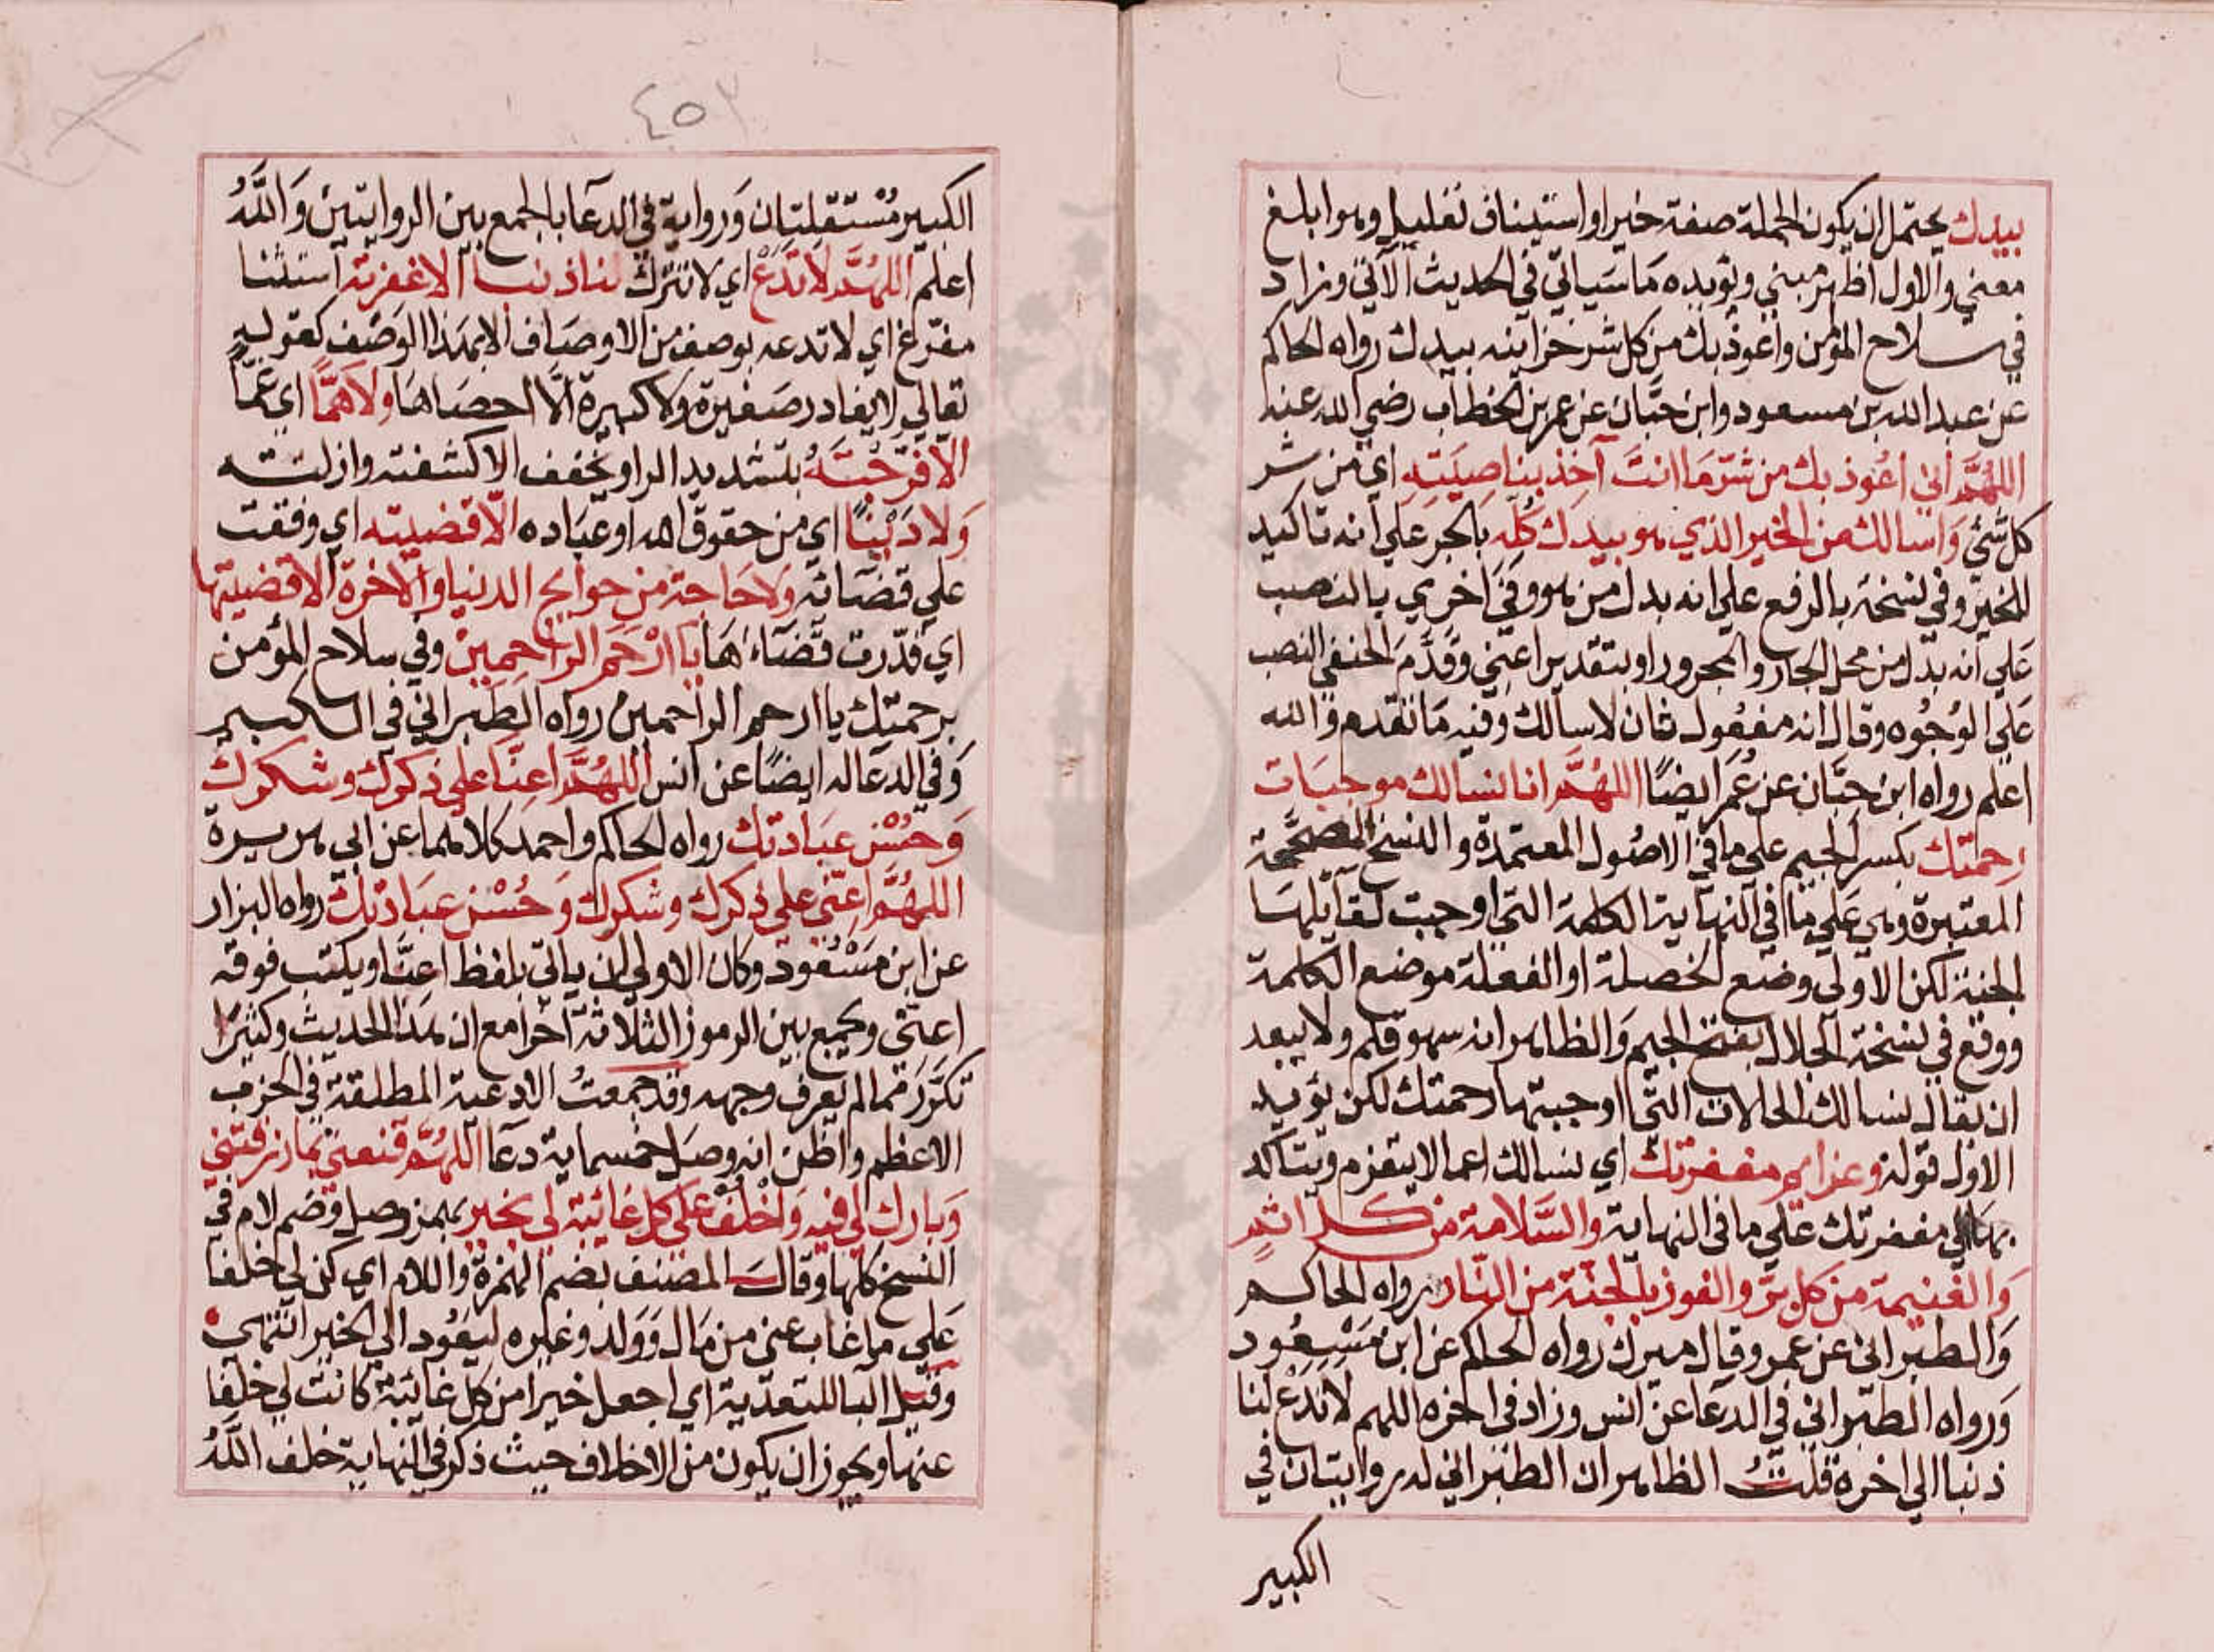 بيدك يحتمل ان يكون الجملة صفة خير او استيناف تعليل وهو ابلغ
معني والاول اظهر مبني ويؤيده مَا سَياتي في الحديث الآتي وزاد
في سلاح المؤمن واعوذ بك من كل شر خزاينه بيدك رواه الحاكم
عن عبد الله بن مسعود وابن حبَّان عن عمر بن الخطاب رضي الله عنه
اللهُمَّ اني اعُوذ بك من شرّ مَا انتَ آخِذ بناصِيَتِهِ اي من شر
كل شَئ وَاسالك من الخير الذي هو بيدك كُلِّه بالجر علي انه تاكيد
للخير وفي نسخة بالرفع علي انه بدل من هو وفي اخري بالنصب
عَلي انه بدل من محل الجار والمجرور او بتقدير اعني وقدَّم الحنفي النصب
عَلي الوُجُوه وقال انه مفعُول ثان لاسالك وفيه مَا تقدم والله
اعلم رواه ابن حبَّان عن عُمَر ايضًا اللهُمَّ انا نسالك موجبَات
رحمتك بكسر الجيم علي ما في الاصُول المعتمدة والنسخ المصَحَّحة
المعتبرة وهي عَلي ما في النهاية الكلمة التي اوجبت لقايلهَا
الجنة لكن الاولي وضع الخصلة او الفعلة موضع الكلمة
ووقع في نسخة الجلال بفتح الجيم وَالظاهر انه سهو قلم ولا يبعد
ان يقال نسالك الحالات التي اوجبتها رحمتك لكن يؤيد
الاول قوله وعزايم مغفرتك اي نسالك اعمالا يتعزم ويتاكد
بهَا الي مغفرتك علي ما في النهاية والسَّلامة من كل اثم
وَالغنيمة من كل برّ والفوز بالجنّة من النّار رواه الحاكم
وَالطبراني عن عمر وقال ميرك رواه الحاكم عن ابن مَسِعُود
وَرواه الطبراني في الدعَا عن انس وزاد في اخره اللهم لا تدَعْ لنا
ذنبا الي اخره قلتُ الظاهر ان الطبراني له روايتان في
الكبير
٤٥٢
الكبير مُسْتقلِتان وَرواية في الدعَا بالجمع بين الروايتين وَاللَّهُ
اعلم اللهُمَّ لا تدَعْ اي لا تترك لنا ذنبا الا غفرته استثنا
مفرّغ اي لا تدعه بوصف من الاوصَاف الا بهذا الوَصف كقوله
تعالي لا يغادر صَغيرة ولا كبيرة الَّا احصَاهَا ولا هَمًّا اي غمًّا
الا فرّجْتَهُ بتشديد الرا ويخفف الا كشفته وازلته
وَلا دَيْنًا اي من حقوق الله او عبَاده الّا قضيته اي وفقت
علي قضَائه وَلا حَاجة من حوايج الدنيا والاخرة الا قضيتها
اي قدّرت قَضَاءهَا يَا ارْحَم الرَاحِمِينْ وفي سلاح المؤمن
برحمتِك يا ارحم الراحمين رواه الطبراني في الكبير
وَفي الدعَا له ايضًا عن انس اللهُمَّ اعِنَّا علي ذكرك وشكرك
وَحُسْن عبَادتك رواه الحاكم واحمد كلاهما عن ابي هريرة
اللهُمَّ اعِنّي علي ذكرك وشكرك وَحُسْن عبَادَتك رواه البزار
عن ابن مَسْعُود وكان الاولي ان ياتي بلفظ اعنَّا ويكتب فوقه
اعنّي ويجمع بين الرموز الثلاثة اخرا مع ان هَذا الحديث وكثيرًا
تكرّر مما لم يعرف وجهه وقد جمعتُ الادعية المطلقة في الحزب
الاعظم واظن انه وصل خمسماية دعَا اللهُمَّ قنعني بما رزقتني
وَبارك لي فيه وَاخْلُفْ عَلي كل غائبة لي بخير بهمز وصل وضم لام في
النسخ كلها وقال المصنف بضم الهمزة واللام اي كن لي خلفا
عَلي ما غاب عني من مَال وَوَلد وغيره ليعُود الي الخير انتهي
وقيل البا للتعدّية اي اجعل خيرا من كل غائبة كانت لي خلفا
عنها ويجوز ان يكون من الاخلاف حيث ذكر في النهاية خلف اللَّهُ